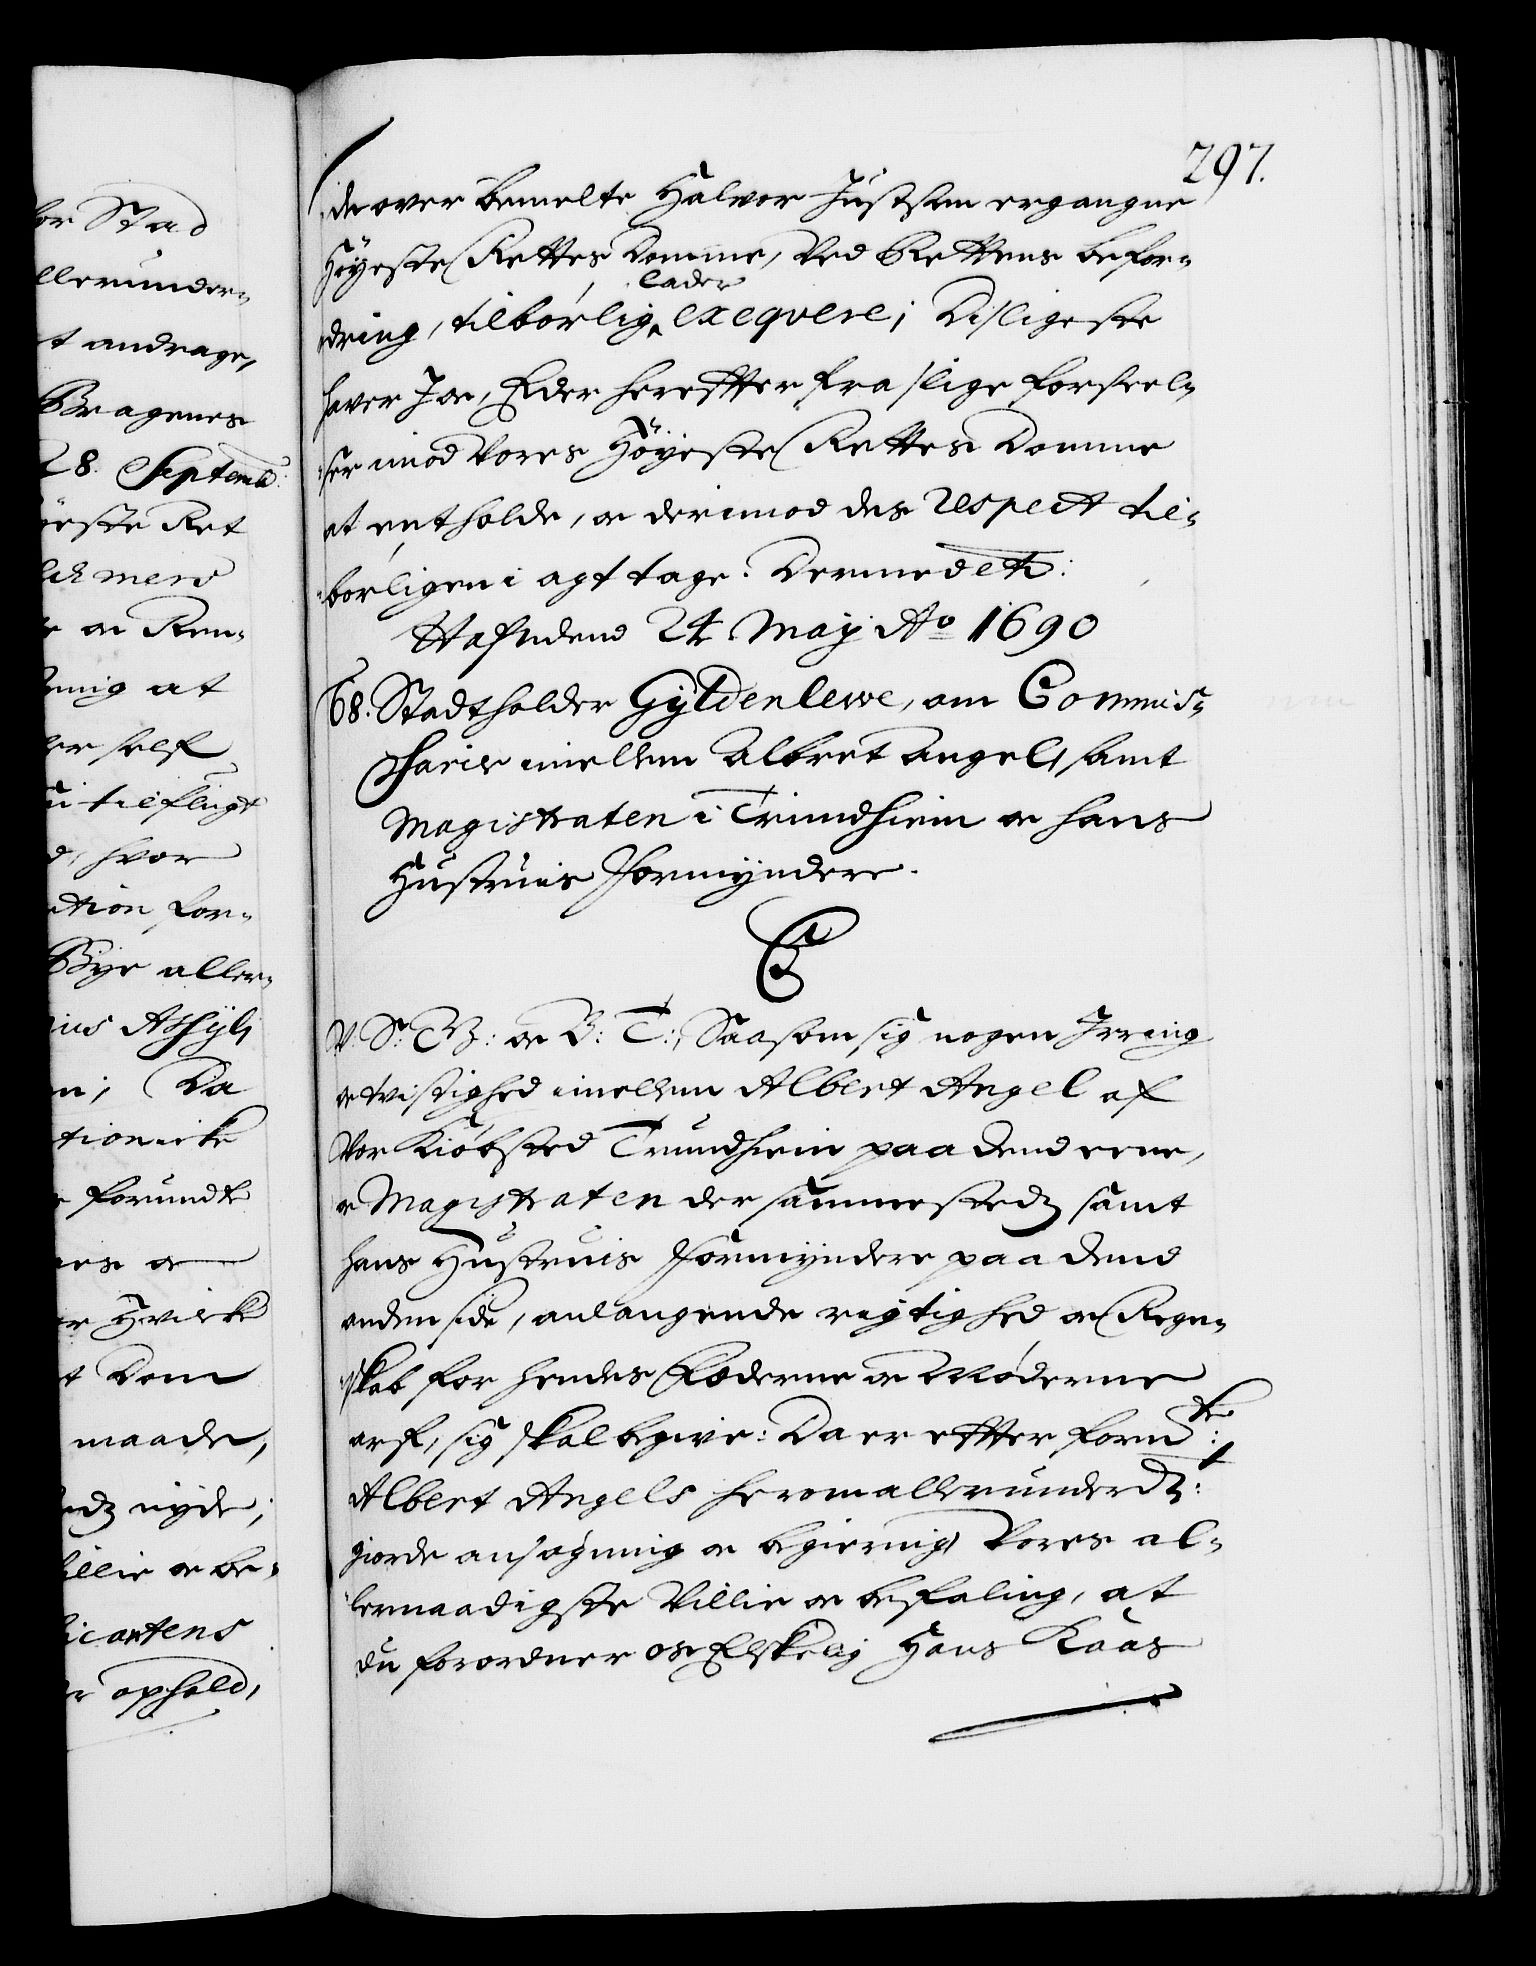 297.
de over bemelte Halvor Justsen ergangne
Höyeste Rettes Domme, Ved Rettens befor-
lader
dring, tilbörlig exeqvere; Disligeste
haver I oc, Eder herefter fra slige forseel-
ser imod Vores Höyeste Rettes Domme
at entholde, oc derimod des respect til-
börligen i agt tage. Dermed etc:
Hafn dend 24 Maj Ao 1690
68. Stadtholder Gyldenlewe, om Commis-
sarier imellem Albret Angel, samt
Magistraten i Trundhiem oc hans
Hustruis Formyndere.
C5
V. S: G: oc B: T:, Saasom sig nogen Irring
oc tvistighed imellem Albert Angel af
Vor Kiöbsted Trundhiem paa dend eene,
oc Magistraten der sammestedz samt
hans Hustruis Formyndere paa dend
anden side, anlangende rigtighed oc Regn-
skab for hendes Fæderne oc Möderne
arf, sig skal begive: Da er effter formte:
Albert Angels herom allerunderdz:
giorde ansögning oc begiering Vores al-
lernaadigste Villie oc befaling, at
du forordner os Elskelig Hans Kaas
for Stad
llerunder-
t andrage,
Bragenes
28. Septemb:
öeste Ret
mers
oc Ren-
ing at
er self
tilflugt
d, hvor
ction for-
Bye aller-
ius Assyli
n; Da
tionirte
forundt
es oc
er Hvilke
t Dom
maade,
dz nyde;
illie oc be-
icantens
ophold,